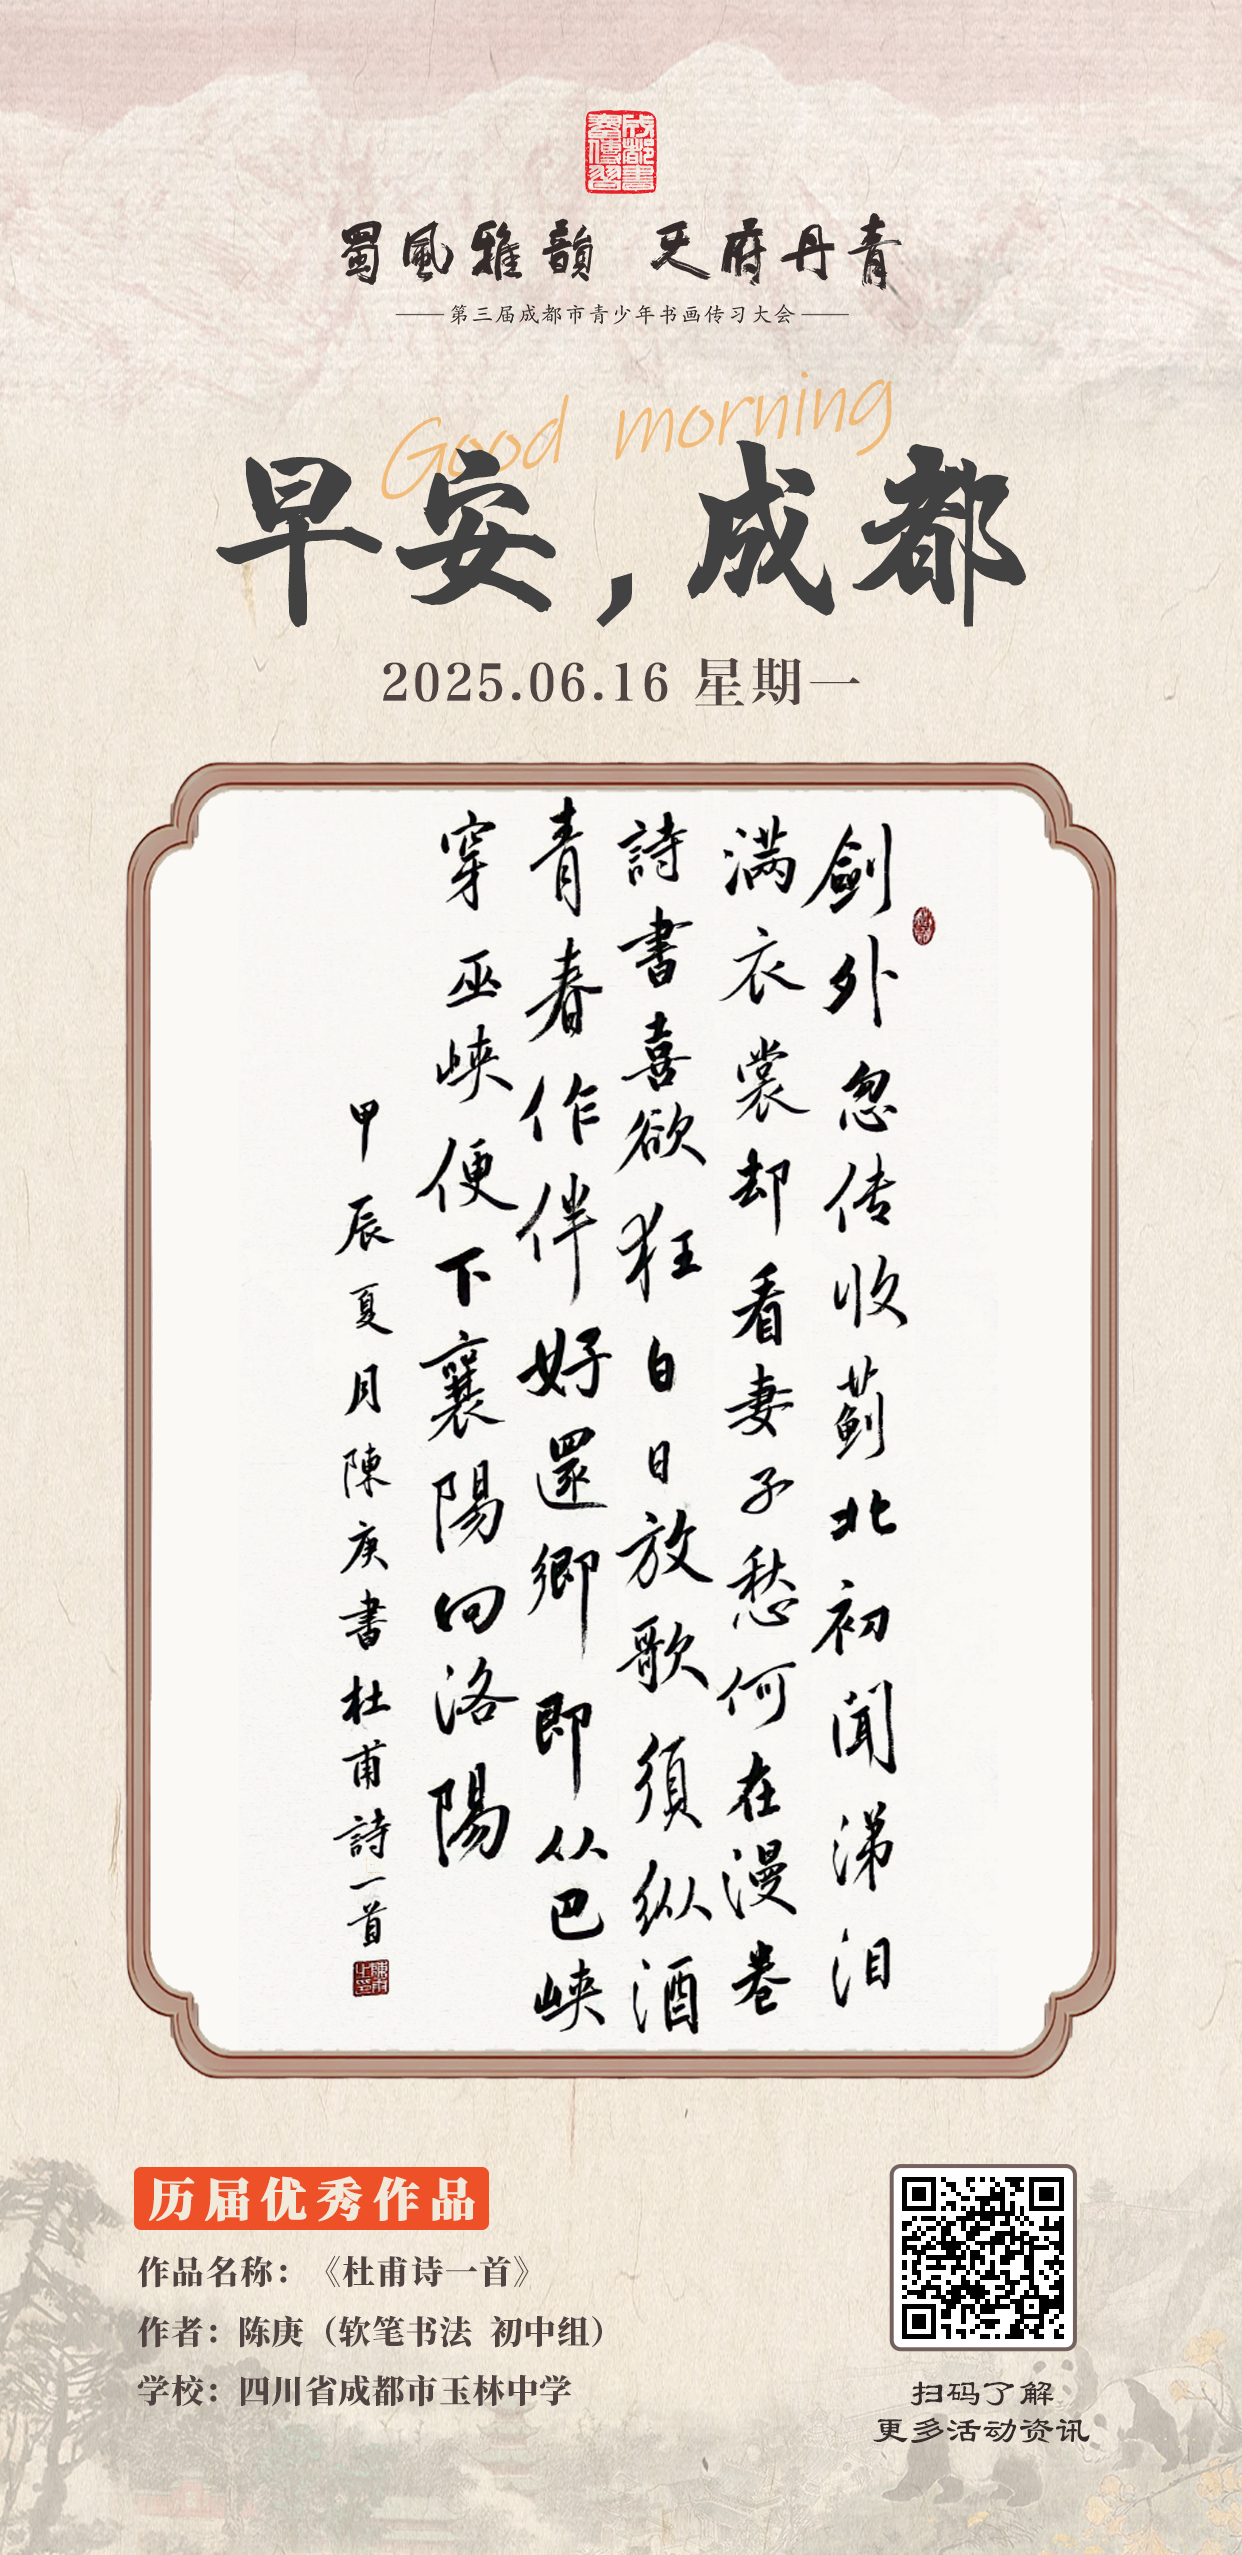 成都書
画傳習
蜀風雅韻 天府丹青
第三届成都市青少年书画传习大会
Good morning
早安，成都
2025.06.16 星期一
劍外忽传收薊北初闻涕泪
满衣裳却看妻子愁何在漫卷
詩書喜欲狂白日放歌須纵酒
青春作伴好還鄉即从巴峡
穿巫峡便下襄陽向洛陽
甲辰夏月陳庚書杜甫詩一首
历届优秀作品
作品名称：《杜甫诗一首》
作者：陈庚（软笔书法 初中组）
学校：四川省成都市玉林中学
扫码了解
更多活动资讯